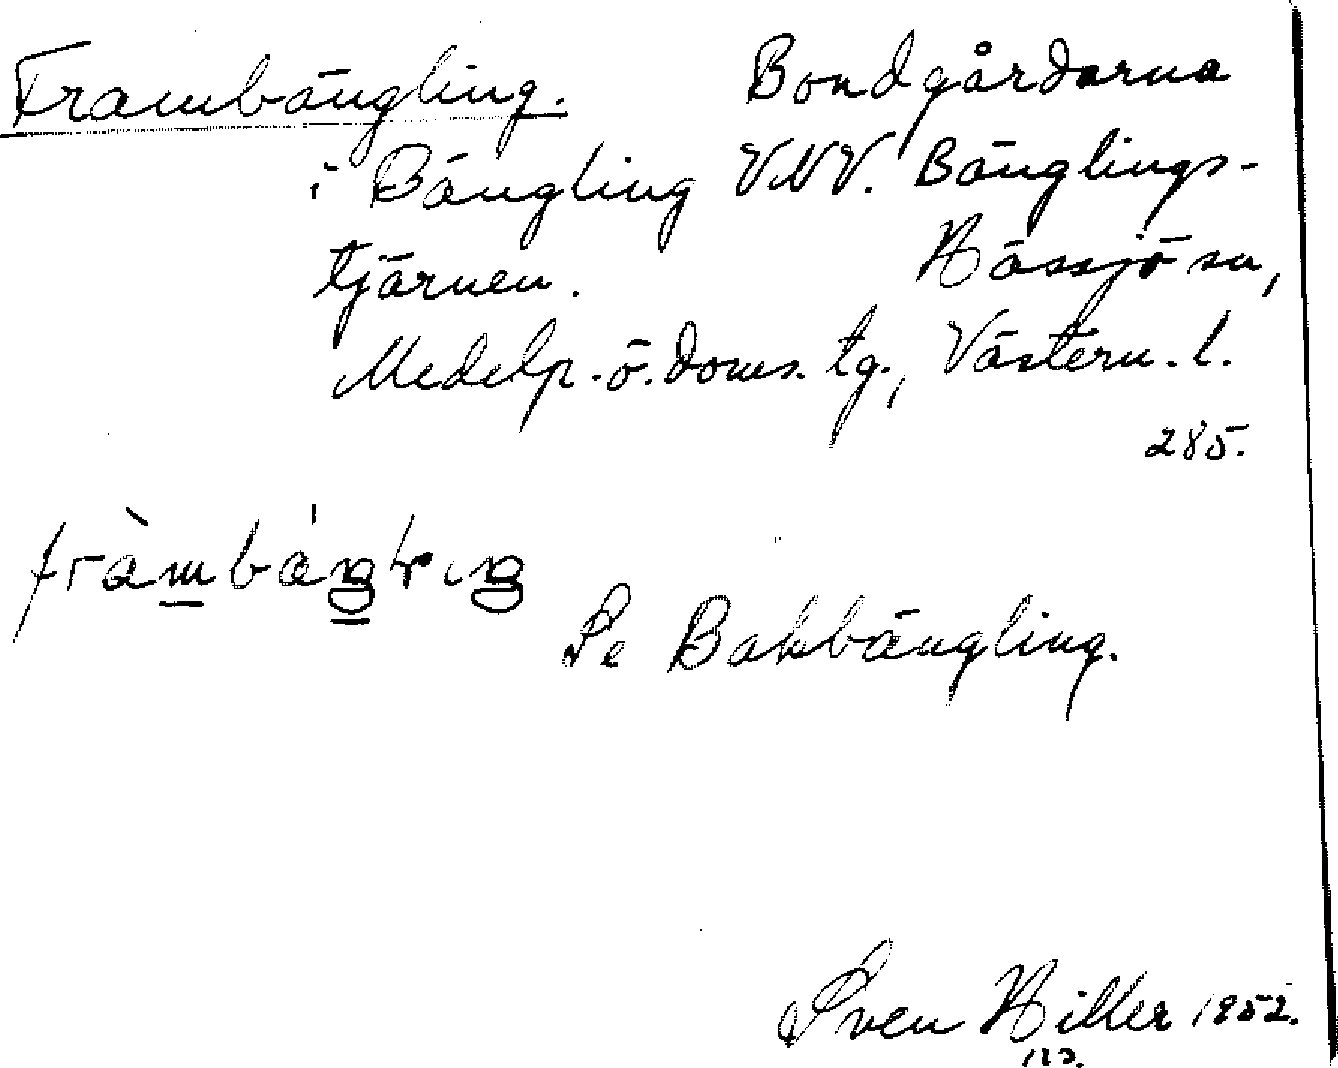 Frambängling. Bondgårdarna
i Bängling VNV. Bänglings-
tjärnen. Hässjö sn,
Medelp. ö. doms. tg., Västern. l.
285.
Se Bakbängling.
Sven Hiller 1952.